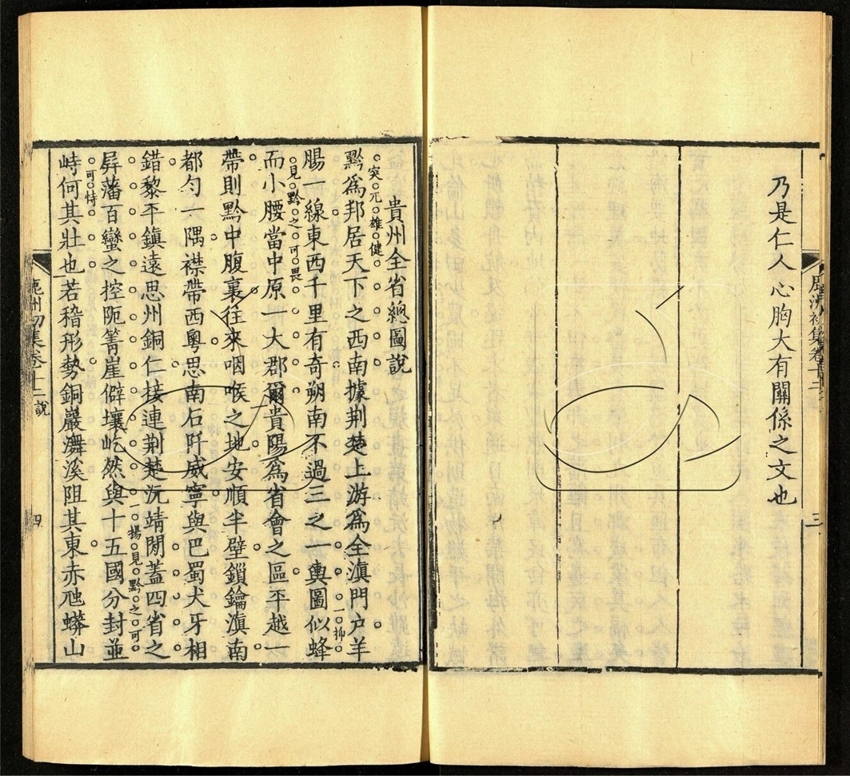 乃是仁人心胸大有關係之文也
三
貴州全省總圖說
突兀雄健
黔爲邦居天下之西南據荆楚上游爲全滇門户羊
一抑
腸一線東西千里有奇朔南不過三之一輿圖似蜂
見黔之可畏
而小腰當中原一大郡爾貴陽爲省會之區平越一
帶則黔中腹裏往來咽喉之地安順半壁鎖鑰滇南
都勻一隅襟帶西粤思南石阡威寧與巴蜀犬牙相
錯黎平鎮遠思州銅仁接連荆楚沅靖閒蓋四省之
一揚見黔之可
屏藩百蠻之控阨箐崖僻壤屹然與十五國分封並
可恃
峙何其壯也若稽形勢銅巖潕溪阻其東赤虺蟒山
鹿洲初集卷十二說
四